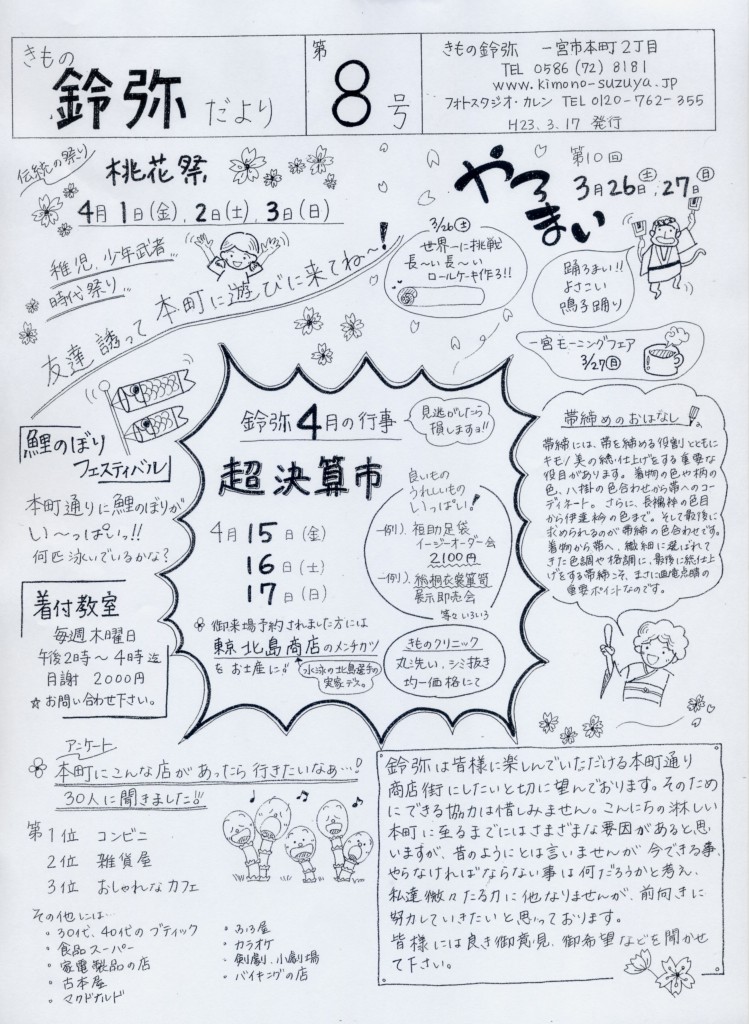 きもの
鈴弥だより
第
8
号
きもの鈴弥 一宮市本町2丁目
TEL 0586(72)8181
www.kimono-suzuya.jp
フォトスタジオ・カレン TEL 0120-762-355
H23.3.17 発行
伝統の祭り
桃花祭
4月1日(金),2日(土),3日(日)
稚児、少年武者…
時代祭り…
友達誘って本町に遊びに来てね〜!
第10回
やろまい
3月26日(土),27日(日)
3/26(土)
世界一に挑戦
長〜い長〜い
ロールケーキ作ろ!!
踊ろまい!!
よさこい
鳴子踊り
一宮モーニングフェア
3/27(日)
鯉のぼり
フェスティバル
本町通りに鯉のぼりが
い〜っぱいっ!!
何匹泳いでいるかな?
着付教室
毎週木曜日
午後2時〜4時迄
月謝 2000円
☆お問い合わせ下さい。
鈴弥4月の行事
見逃がしたら
損しますョ!!
超決算市
4月15日(金)
16日(土)
17日(日)
良いもの
うれしいもの
いっぱい!
一例)、福助足袋
イージーオーダー会
2100円
一例)、総桐衣裳箪笥
展示即売会
等々いろいろ
御来場予約されました方には
東京北島商店のメンチカツ
をお土産に!!
水泳の北島選手の
実家デス。
きものクリニック
丸洗い、シミ抜き
均一価格にて
帯締めのおはなし
帯締には、帯を締める役割とともに
キモノ美の総仕上げをする重要な
役目があります。着物の色や柄の
色、八掛の色合わせから帯へのコー
ディネート。さらに、長襦袢の色目
から伊達衿の色まで。そして最後に
求められるのが帯締の色合わせです。
着物から帯へ、繊細に選ばれて
きた色調や格調に、最後に総仕上
げをする帯締こそ、まさに画竜点睛の
重要ポイントなのです。
アンケート
本町にこんな店があったら行きたいなぁ…!
30人に聞きました!!
第1位 コンビニ
2位 雑貨屋
3位 おしゃれなカフェ
その他には…
・30代、40代のブティック
・食品スーパー
・家電製品の店
・古本屋
・マクドナルド
・おふろ屋
・カラオケ
・剣劇、小劇場
・バイキングの店
鈴弥は皆様に楽しんでいただける本町通り
商店街にしたいと切に望んでおります。そのため
にできる協力は惜しみません。こんにちの淋しい
本町に至るまでにはさまざまな要因があると思
いますが、昔のようにとは言いませんが今できる事、
やらなければならない事は何だろうかと考え、
私達微々たる力に他なりませんが、前向きに
努力していきたいと思っております。
皆様には良き御意見、御希望などを聞かせ
て下さい。